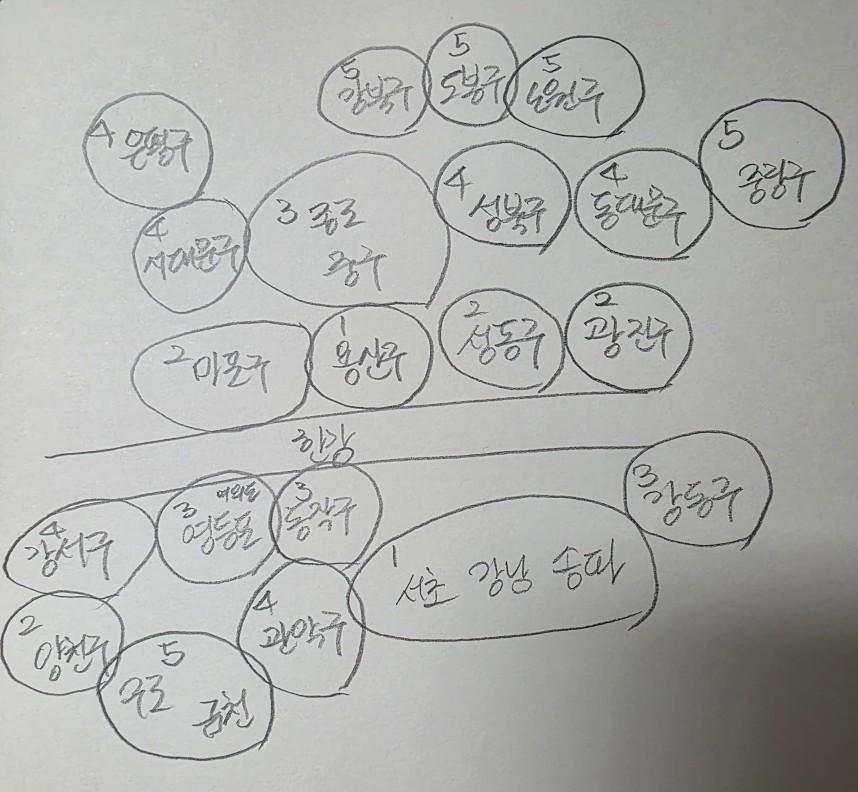 5 강북구
5 도봉구
5 노원구
4 은평구
5 중랑구
4 서대문구
3 종로
중구
4 성북구
4 동대문구
2 마포구
1 용산구
2 성동구
2 광진구
한강
4 강서구
3 여의도
영등포
3 동작구
1 서초 강남 송파
3 강동구
2 양천구
5 구로
금천
4 관악구